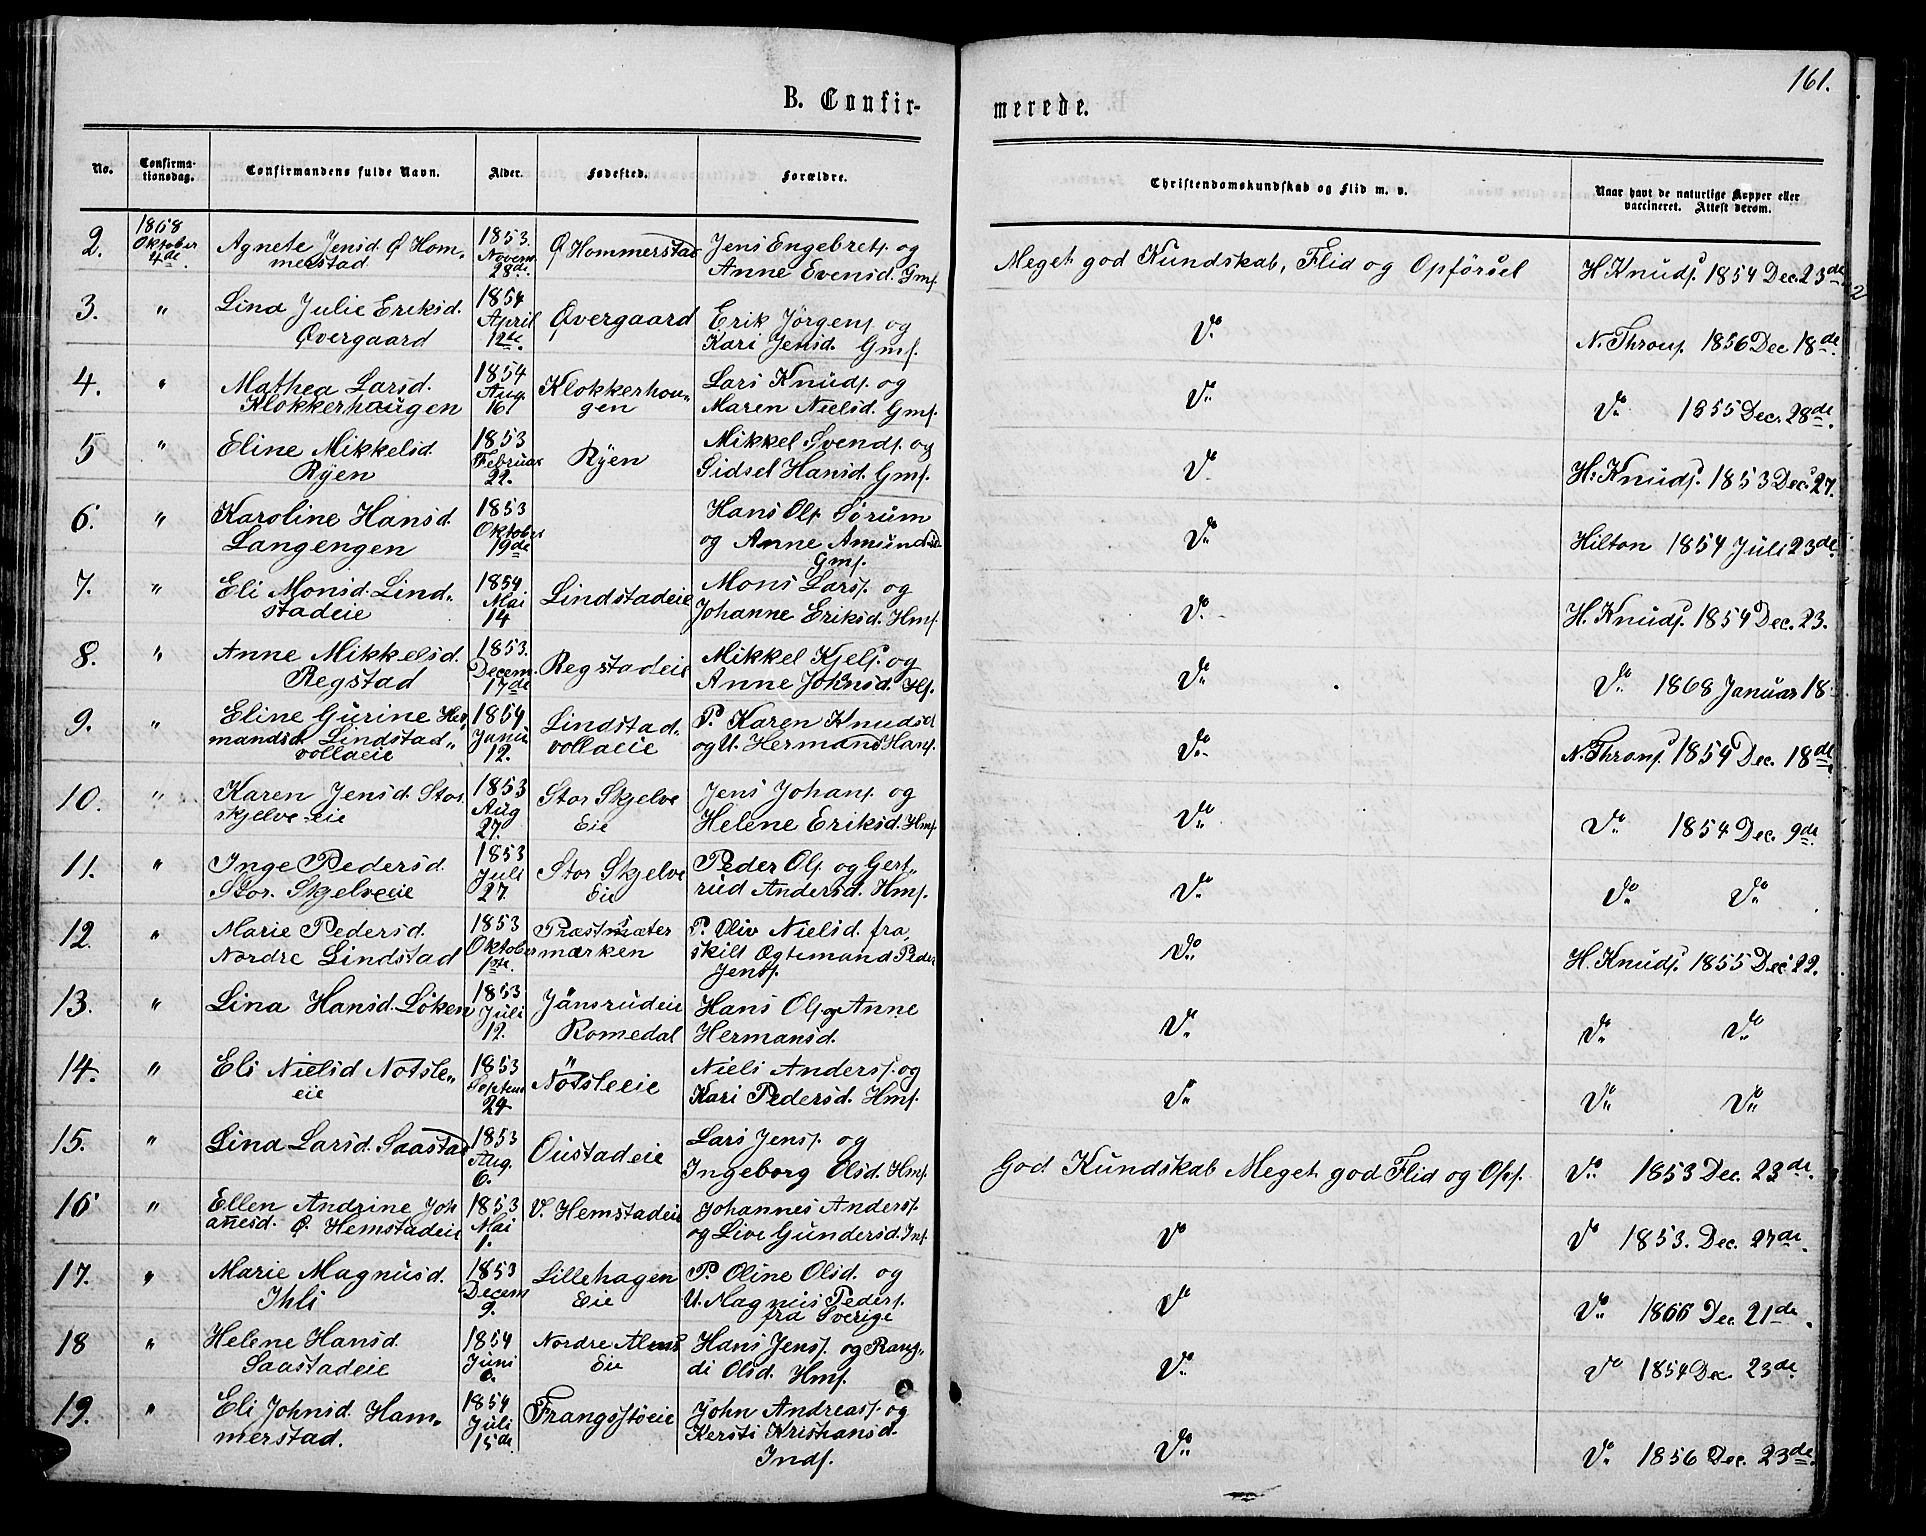 161.
B. Confirmerede.
No. Confirmationsdag. Confirmandens fulde Navn. Alder. Fødested. Forældre. Christendomskundskab og Flid m. v. Naar havt de naturlige Kopper eller vaccineret. Attest derom.
2. 1868 Oktober 4de Agnete Jensd. Ø Hommerstad 1853. Novem. 28de. Ø Hommerstad Jens Engebrets. og Anne Evensd. Gmf. Meget god Kundskab, Flid og Opførsel H. Knuds. 1854 Dec. 23de.
3. " Lina Julie Eriksd. Øvergaard 1854 April 12te. Øvergaard Erik Jörgens. og Kari Jensd. Gmf. Do. N. Throns. 1856 Dec 18de.
4. " Mathea Larsd. Klokkerhaugen 1854 Aug. 16. Klokkerhougen Lars Knuds. og Maren Nielsd. Gmf. Do. Do. 1855 Dec. 28de.
5 " Eline Mikkelsd. Ryen 1853 Februar 22. Ryen Mikkel Svends. og Sidsel Hansd. Gmf. Do H. Knuds. 1853 Dec. 27.
6. " Karoline Hansd. Langengen 1853 Oktober 19de Hans Ols. Sörum og Anne Amundsd. Gmf. Do Hilton 1854 Juli 23de
7. " Eli Monsd. Lindstadeie 1854 Mai 14 Lindstadeie Mons Lars. og Johanne Eriksd. Hmf. Do. H. Knuds. 1854 Dec. 23.
8. " Anne Mikkelsd. Regstad 1853. Decem. 17de Regstadeie Mikkel Kjels. og Anne Johnsd. Hf. Do. Do. 1868 Januar 18
9. " Eline Gurine Hermandsd. Lindstadvollaeie 1854 Juni 12. Lindstadvollaeie P. Karen Knudsd og U. Hermand Hans. Do. N. Throns. 1854 Dec. 18de
10. " Karen Jensd. Storskjelve-eie 1853 Aug 27. Stor Skjelve Eie Jens Johans. og Helene Eriksd. Hmf. Do. Do 1854 Dec. 9de
11. " Inge Pedersd. Stor. Skjelveeie 1853 Juli 27. Stor Skjelve Eie Peder Ols. og Gertrud Andersd. Hmf. Do. Do Do
12. " Marie Pedersd. Nordre Lindstad 1853 Oktober 1ste. Præstsætermarken P. Oliv Nielsd. fraskilt Ægtemand Peder Jens. Do. H. Knuds. 1855 Dec 22.
13. " Lina Hansd. Löken 1853 Juli 12. Jönsrudeie Romedal Hans Ols. og Anne Hermansd. Do Do Do
14. " Eli Nielsd Nötsleeie 1853 Septem 24 Nötsleeie Niels Anders. og Kari Pedersd. Hmf. Do Do Do
15. " Lina Larsd. Saastad 1853 Aug. 6. Oustadeie Lars Jens. og Ingeborg Olsd. Hmf. God Kundskab Meget god Flid og Opf. Do. 1853 Dec. 23de.
16 " Ellen Andrine Johanesd. Ø. Hemstadeie 1853 Mai 1. V. Hemstadeie Johannes Anders. og Live Gundersd. Inf. Do Do 1853. Dec. 27de.
17. " Marie Magnusd. Ihli 1853 Decem 9. Lillehagen Eie P. Oline Olsd. og U. Magnus Peders. fra Sverige Do Do. 1866 Dec. 21de.
18 " Helene Hansd. Saastadeie 1854 Juni 6. Nordre Alms Eie Hans Jens. og Rangdi Olsd. Hmf. Do. Do 1854 Dec. 23de.
19. " Eli Johnsd. Hammerstad. 1854 Juli 15de. Frangsstöeie John Andreas. og Kersti Kristiansd. Indf. Do. Do. 1856 Dec. 23de.